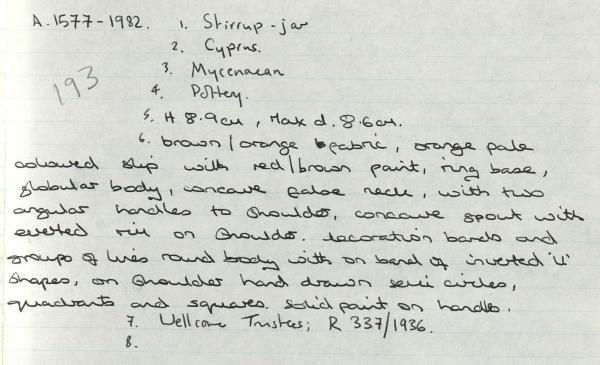 A.1577-1982. 1. Stirrup-jar
2. Cyprus.
193
3. Mycenaean
4. Pottery.
5. H 8.9cm, Max d. 8.6cm.
6. brown/orange fabric, orange pale
coloured slip with red/brown paint, ring base,
globular body, concave false neck, with two
angular handles to shoulder, concave spout with
everted rim on shoulder. decoration bands and
groups of lines round body with on band of inverted 'U'
shapes, on shoulder hand drawn semi circles,
quadrants and squares. Solid paint on handles.
7. Wellcome Trustees; R 337/1936.
8.